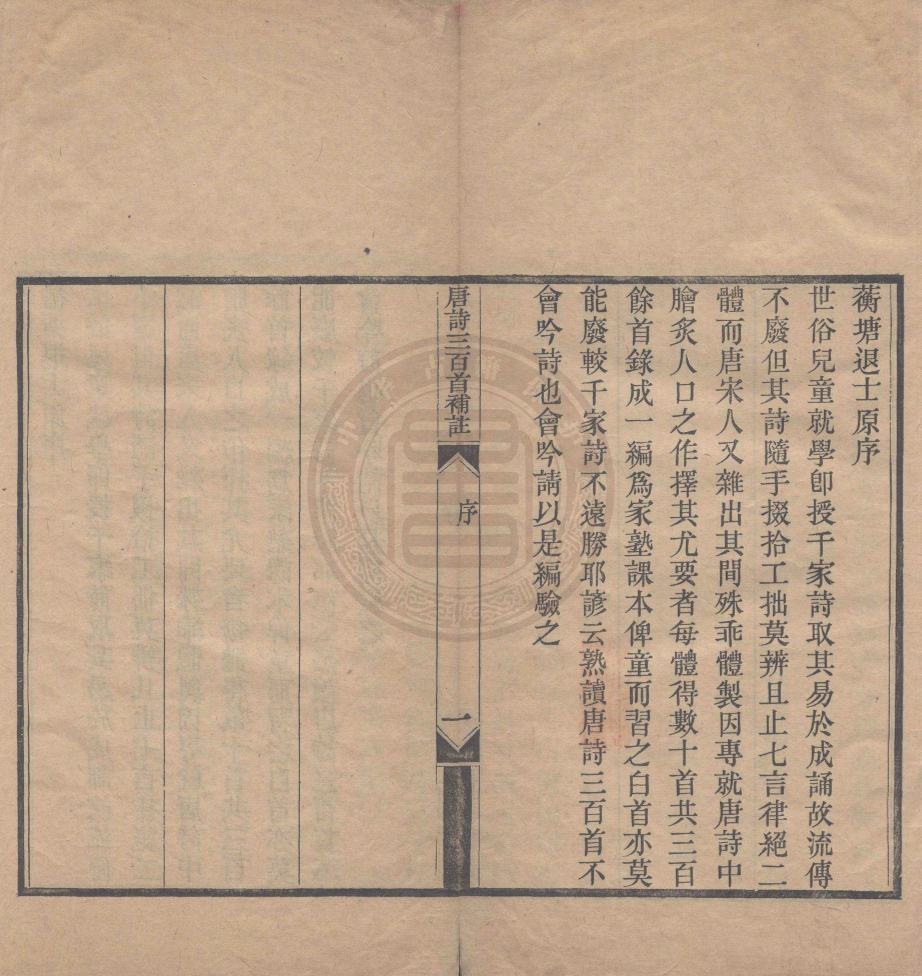 蘅塘退士原序
世俗兒童就學卽授千家詩取其易於成誦故流傳
不廢但其詩隨手掇拾工拙莫辨且止七言律絕二
體而唐宋人又雜出其間殊乖體製因專就唐詩中
膾炙人口之作擇其尤要者每體得數十首共三百
餘首錄成一編爲家塾課本俾童而習之白首亦莫
能廢較千家詩不遠勝耶諺云熟讀唐詩三百首不
會吟詩也會吟請以是編驗之
唐詩三百首補註
序
一